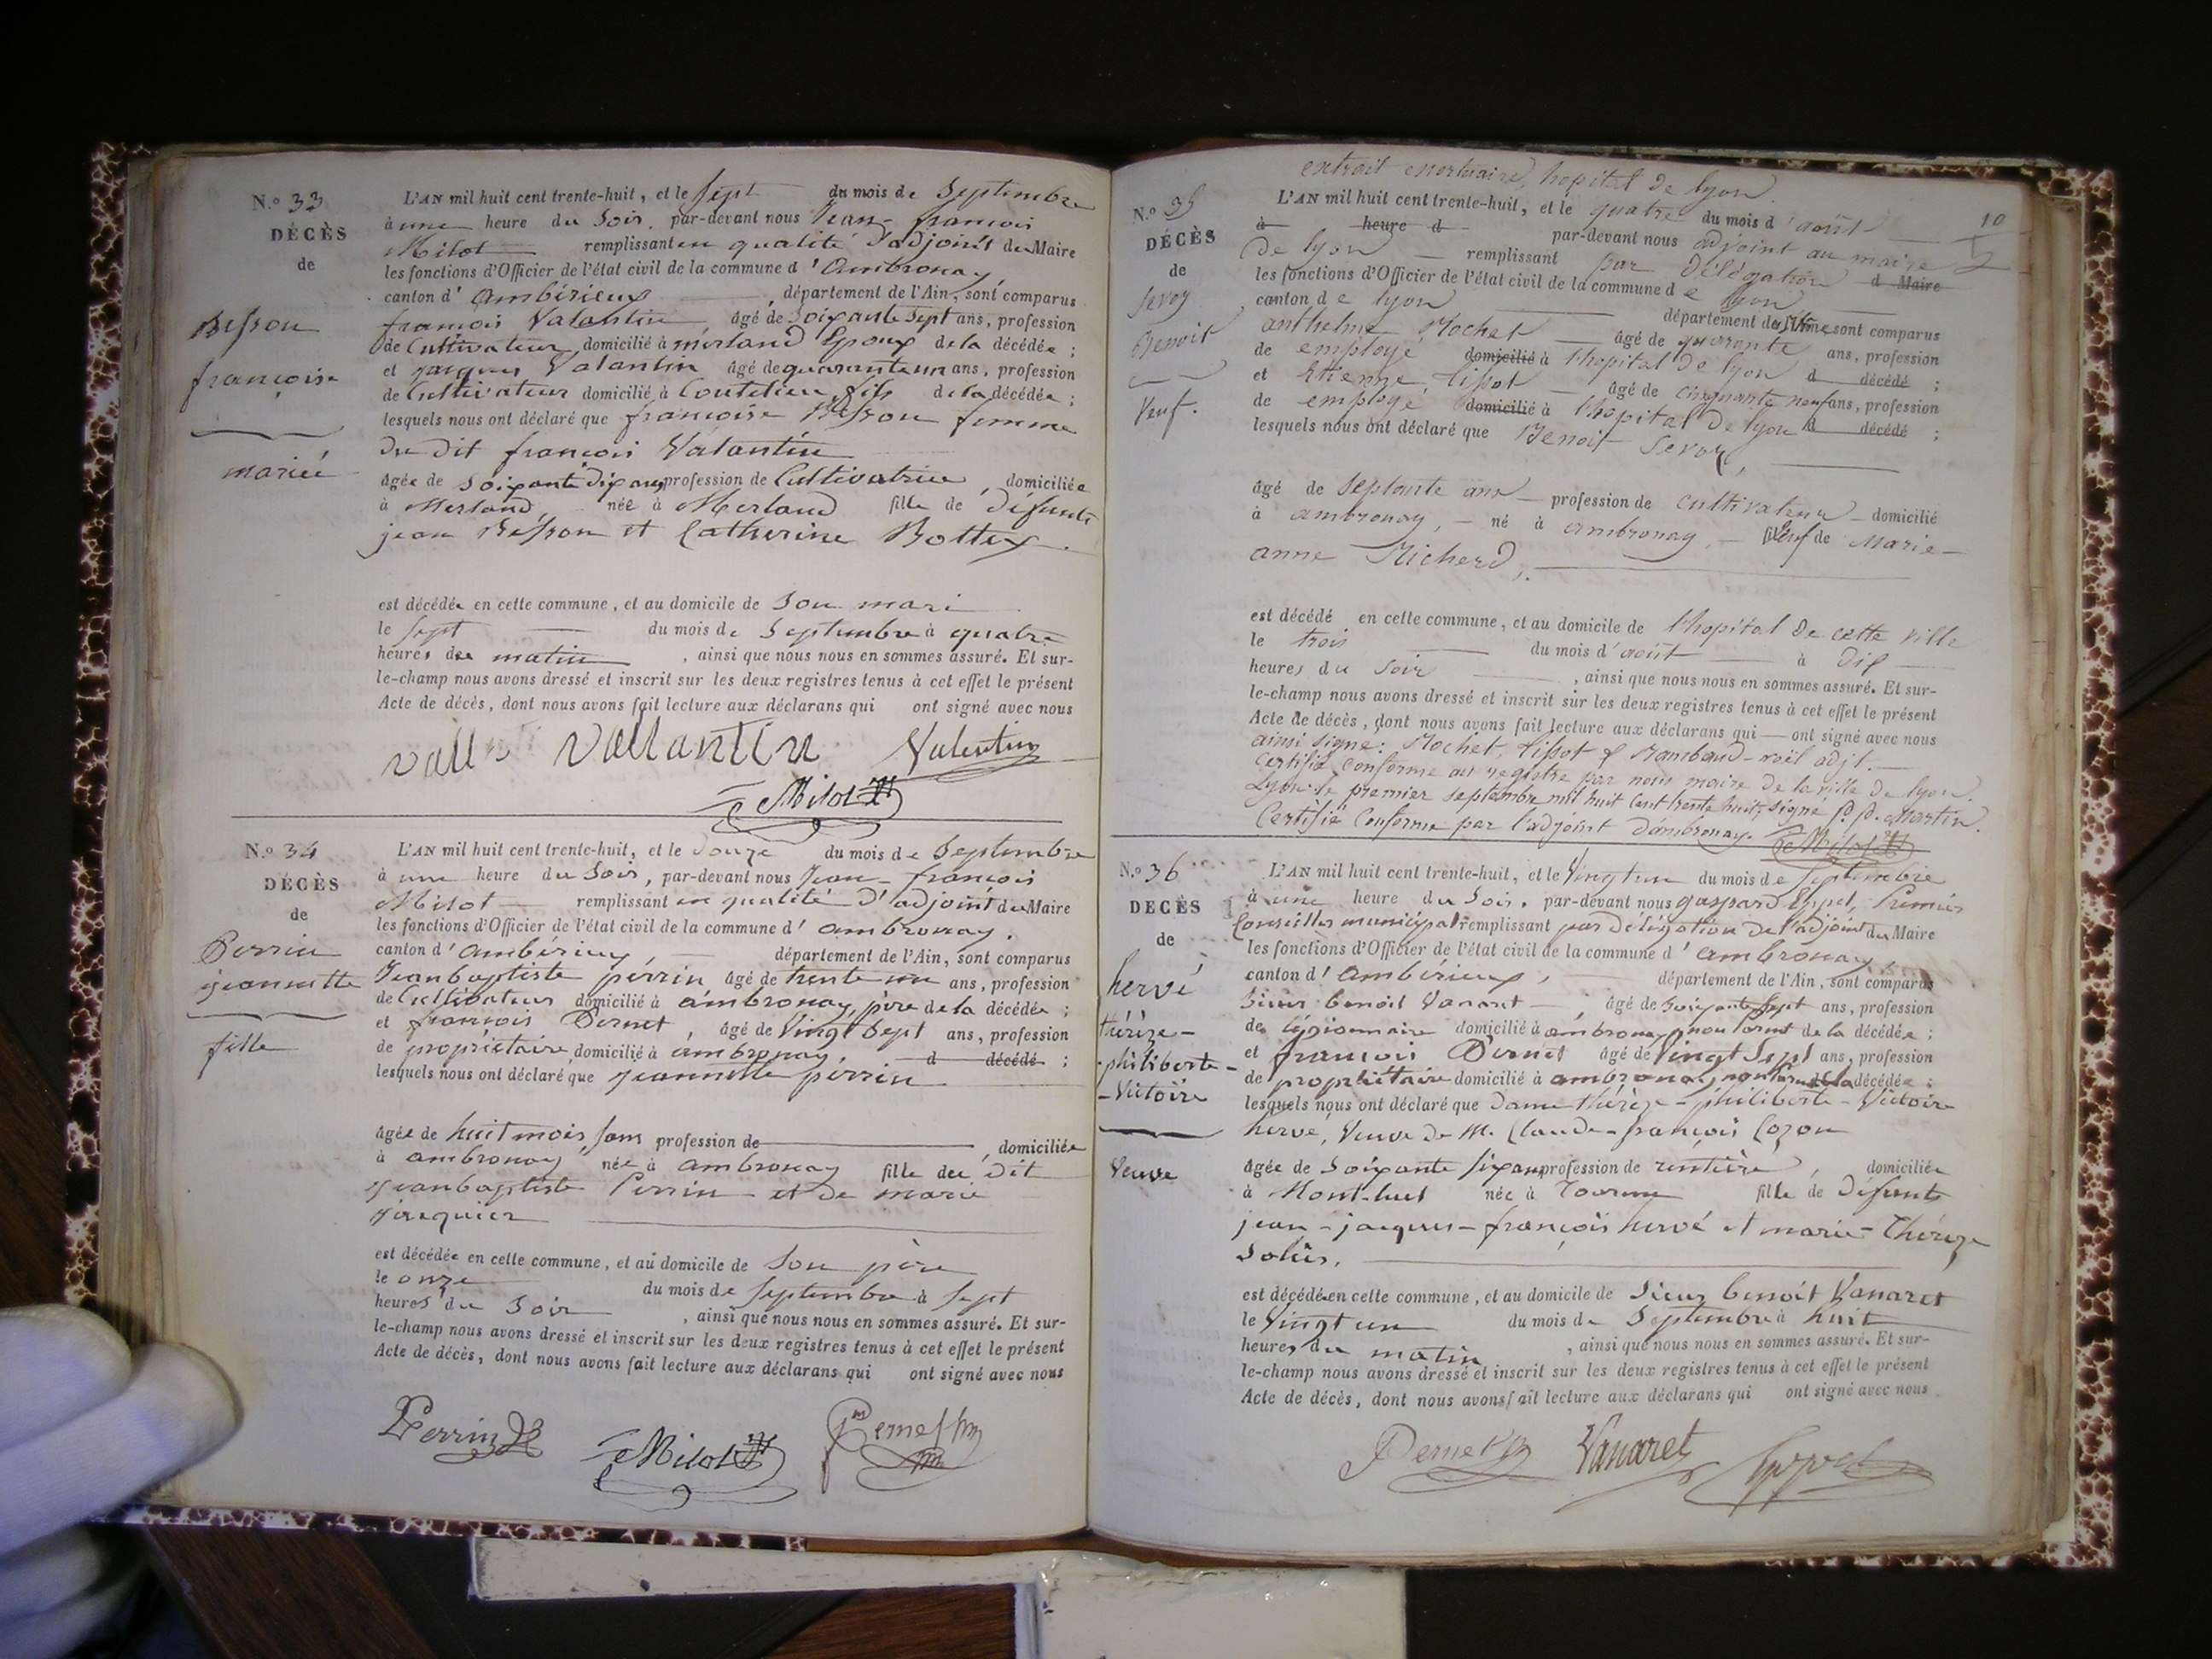 N.o 33
DÉCÈS
de
Besson
françoise
mariée
L'AN mil huit cent trente-huit, et le sept du mois de Septembre
à une heure du Soir, par-devant nous Jean-françois
Milot remplissant en qualité d'adjoint du Maire
les fonctions d'Officier de l'état civil de la commune d'Ambronay,
canton d'Ambérieux département de l'Ain, sont comparus
françois Valantin âgé de Soixante Sept ans, profession
de Cultivateur domicilié à merland Epoux de la décédée ;
et jacques Valantin âgé de quarante un ans, profession
de Cultivateur domicilié à Coutelieu, fils de la décédée ;
lesquels nous ont déclaré que françoise Besson femme
du dit françois Valantin
âgée de Soixante dix ans, profession de Cultivatrice, domiciliée
à Merland, née à Merland fille de défunts
jean Besson et Catherine Bottex.
est décédée en cette commune, et au domicile de Son mari
le Sept du mois de Septembre à quatre
heures du matin, ainsi que nous nous en sommes assuré. Et sur-
le-champ nous avons dressé et inscrit sur les deux registres tenus à cet effet le présent
Acte de décès, dont nous avons fait lecture aux déclarans qui ont signé avec nous
vallantin Valentin
Milot
N.o 34
DÉCÈS
de
Perrin
jeannette
fille
L'AN mil huit cent trente-huit, et le douze du mois de Septembre
à une heure du Soir, par-devant nous Jean-françois
Milot remplissant en qualité d'adjoint du Maire
les fonctions d'Officier de l'état civil de la commune d'ambronay,
canton d'ambérieux département de l'Ain, sont comparus
Jeanbaptiste perrin âgé de trente un ans, profession
de Cultivateur domicilié à ambronay, père de la décédée ;
et françois Dernet, âgé de Vingt Sept ans, profession
de propriétaire, domicilié à ambronay, d décédé ;
lesquels nous ont déclaré que jeannette perrin
âgée de huit mois, Sans profession de domiciliée
à ambronay née à ambronay fille du dit
jeanbaptiste Perrin et de marie
est décédée en cette commune, et au domicile de Son père
le onze du mois de Septembre à Sept
heures du Soir, ainsi que nous nous en sommes assuré. Et sur-
le-champ nous avons dressé et inscrit sur les deux registres tenus à cet effet le présent
Acte de décès, dont nous avons fait lecture aux déclarans qui ont signé avec nous
Perrin Milot Dernet
extrait mortuaire, hopital de lyon.
10
N.o 35
DÉCÈS
de
Sevoz
Benoit
Veuf.
L'AN mil huit cent trente-huit, et le quatre du mois d'août
à heure d par-devant nous adjoint au maire
de lyon remplissant par délégation d Maire
les fonctions d'Officier de l'état civil de la commune de lyon
canton de lyon département du Rhône sont comparus
anthelme Rochet âgé de quarante ans, profession
de employé domicilié à l'hopital de lyon d décédé ;
et Etienne Tissot âgé de cinquante neuf ans, profession
de employé domicilié à l'hopital de lyon d décédé ;
lesquels nous ont déclaré que Benoit Sevoz,
âgé de Septante ans profession de cultivateur domicilié
à ambronay, né à ambronay, veuf de Marie-
anne Richerd,
est décédé en cette commune, et au domicile de l'hopital de cette ville
le trois du mois d'août à dix
heures du Soir, ainsi que nous nous en sommes assuré. Et sur-
le-champ nous avons dressé et inscrit sur les deux registres tenus à cet effet le présent
Acte de décès, dont nous avons fait lecture aux déclarans qui ont signé avec nous
ainsi signé : Rochet, Tissot & Rambaud-noël adjt.
Certifié conforme au registre par nous maire de la ville de lyon.
Lyon le premier Septembre mil huit cent trente huit, signé P. P. Martin.
Certifié Conforme par l'adjoint d'ambronay. Milot
N.o 36
DÉCÈS
de
hervé
thérèze-
philiberte-
-Victoire
Veuve
L'AN mil huit cent trente-huit, et le Vingt un du mois de Septembre
à une heure du Soir, par-devant nous gaspard Eppel, Premier
Conseiller municipal remplissant par délégation de l'adjoint du Maire
les fonctions d'Officier de l'état civil de la commune d'ambronay,
canton d'Ambérieux, département de l'Ain, sont comparus
Sieur benoit Vanaret âgé de Soixante Sept ans, profession
de légionnaire domicilié à ambronay, non parent de la décédée ;
et francois Dernet âgé de Vingt Sept ans, profession
de propriétaire domicilié à ambronay, non parent de la décédée ;
lesquels nous ont déclaré que dame thérèze-philiberte-Victoire
hervé, Veuve de M. Claude-françois Cozon
âgée de Soixante Six ans, profession de rentière, domiciliée
à Mont-luel née à Tournu fille de défunts
jean-jacques-françois hervé et marie-Thérèze
Solüs.
est décédée en cette commune, et au domicile de Sieur benoit Vanaret
le Vingt un du mois de Septembre à huit
heures du matin, ainsi que nous nous en sommes assuré. Et sur-
le-champ nous avons dressé et inscrit sur les deux registres tenus à cet effet le présent
Acte de décès, dont nous avons fait lecture aux déclarans qui ont signé avec nous
Dernet Vanaret Eppel